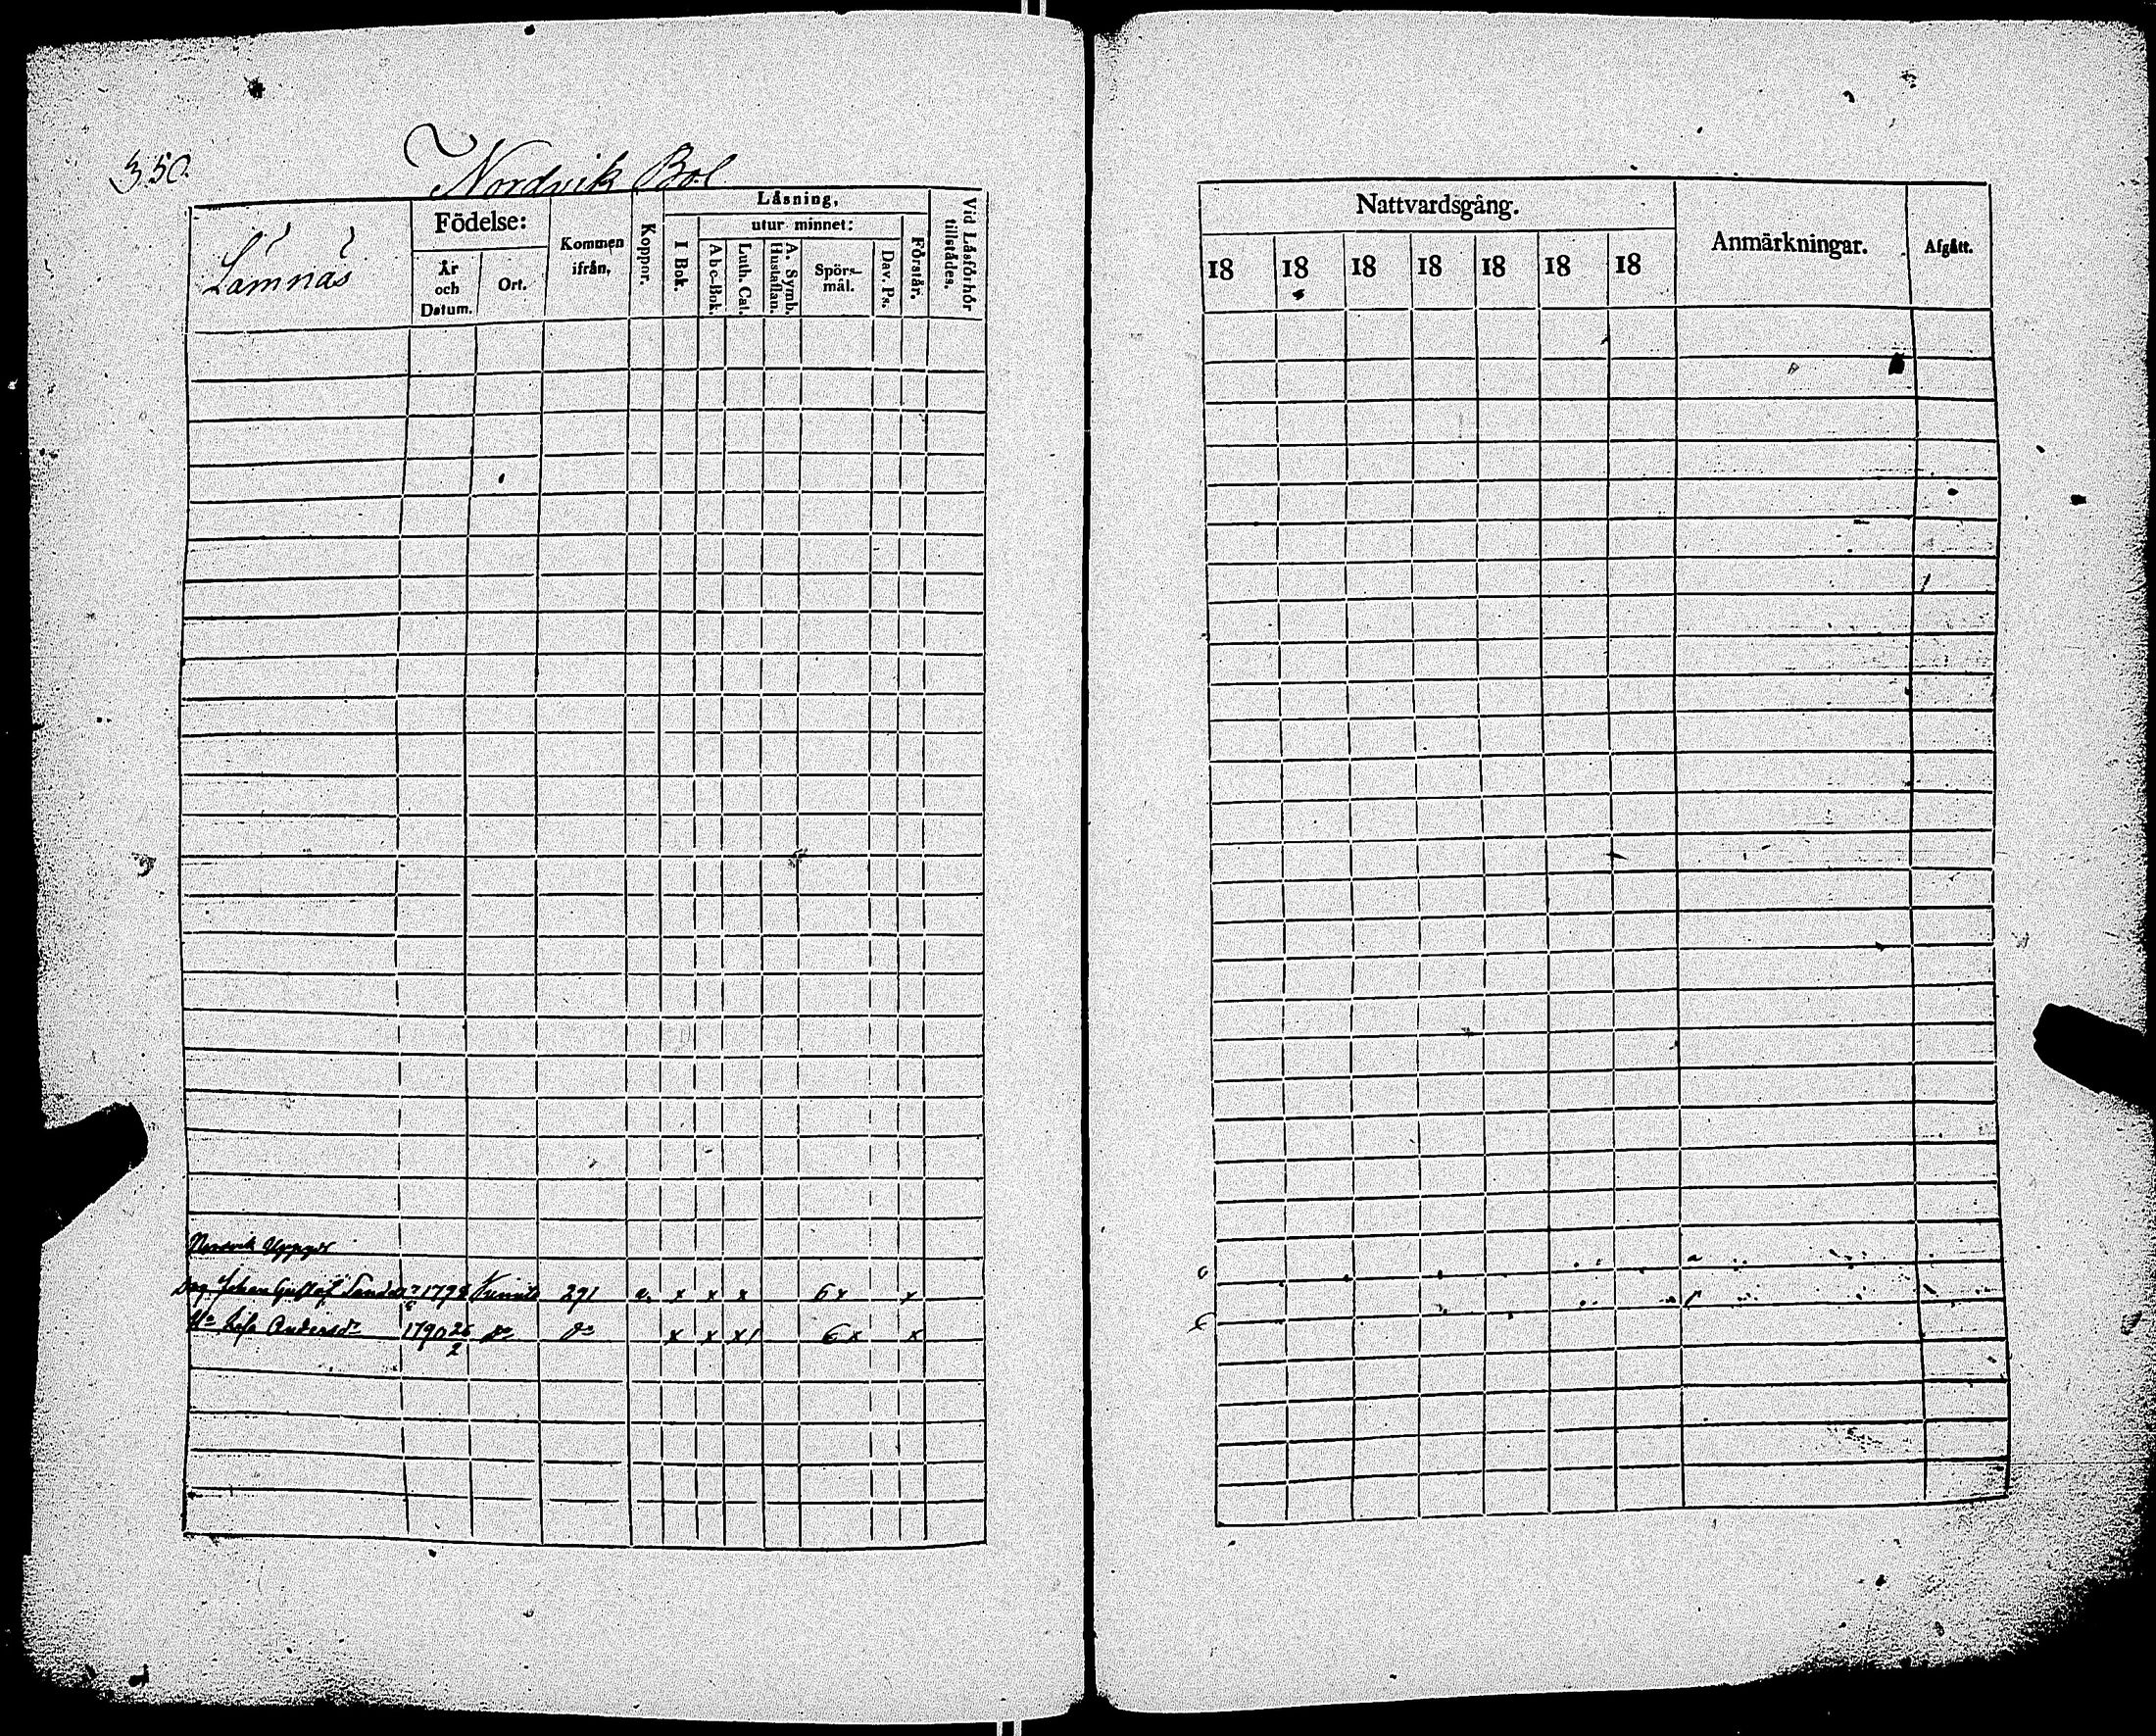 350.
Nordvik Bol
Lämnäs
Födelse:
År och Datum.
Ort.
Kommen ifrån,
Koppor.
Läsning,
I Bok.
utur minnet:
Abc-Bok.
Luth. Cat.
A. Symb. Hustaflan.
Spörsmål.
Dav. Ps.
Förstår.
Vid Läsförhör tillstädes.
Nattvardsgång.
18 18 18 18 18 18 18
Anmärkningar.
Afgått.
Johan Gustaf 179 291 x x x 6 x x
Andersdr 1790 26/2 do do x x x 1 6 x x